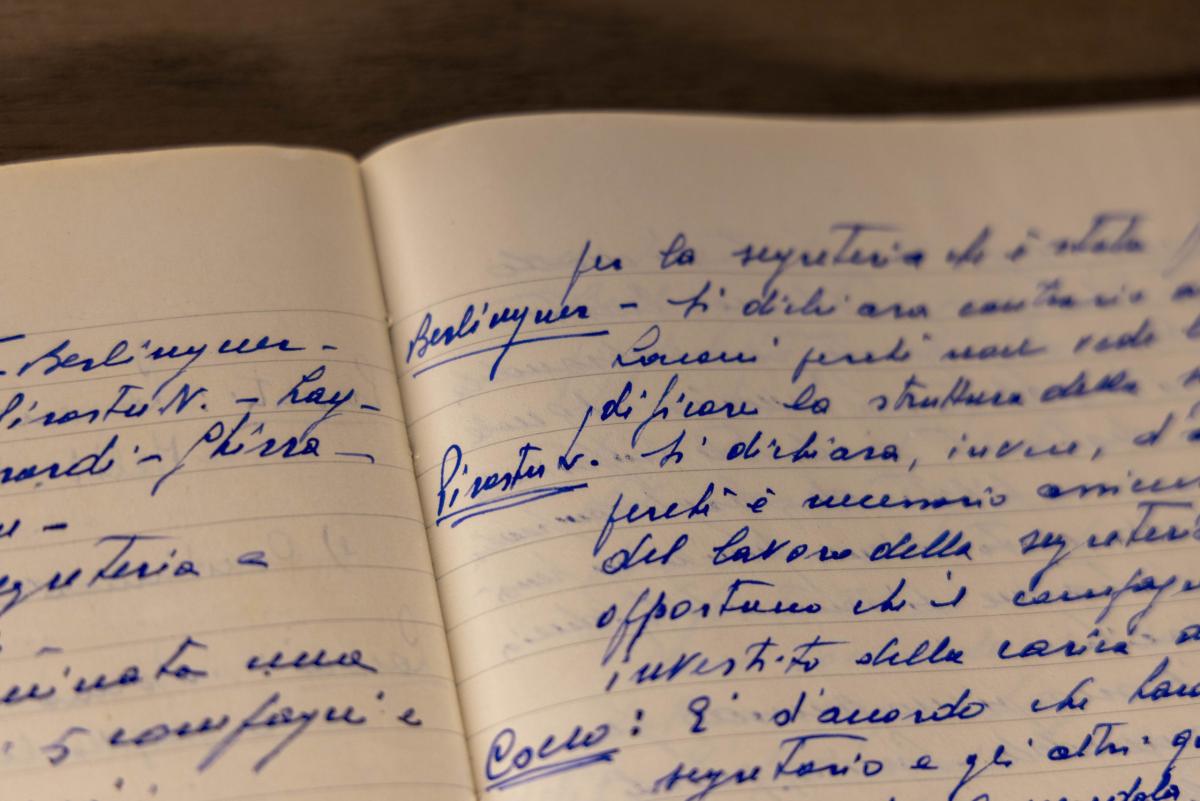 - Berlinguer -
Pirastu N. - Lay -
- Ghirra -
segreteria a
una
5 compagni e
per la segreteria che è stata
Berlinguer - Si dichiara contrario
Laconi perché non vede
dificare la struttura della
Pirastu N. - Si dichiara, invece, d'a
perché è necessario assicur
del lavoro della segreteria
opportuno che il compagn
investito della carica
Cocco: E' d'accordo che Lac
segretario e gli altri